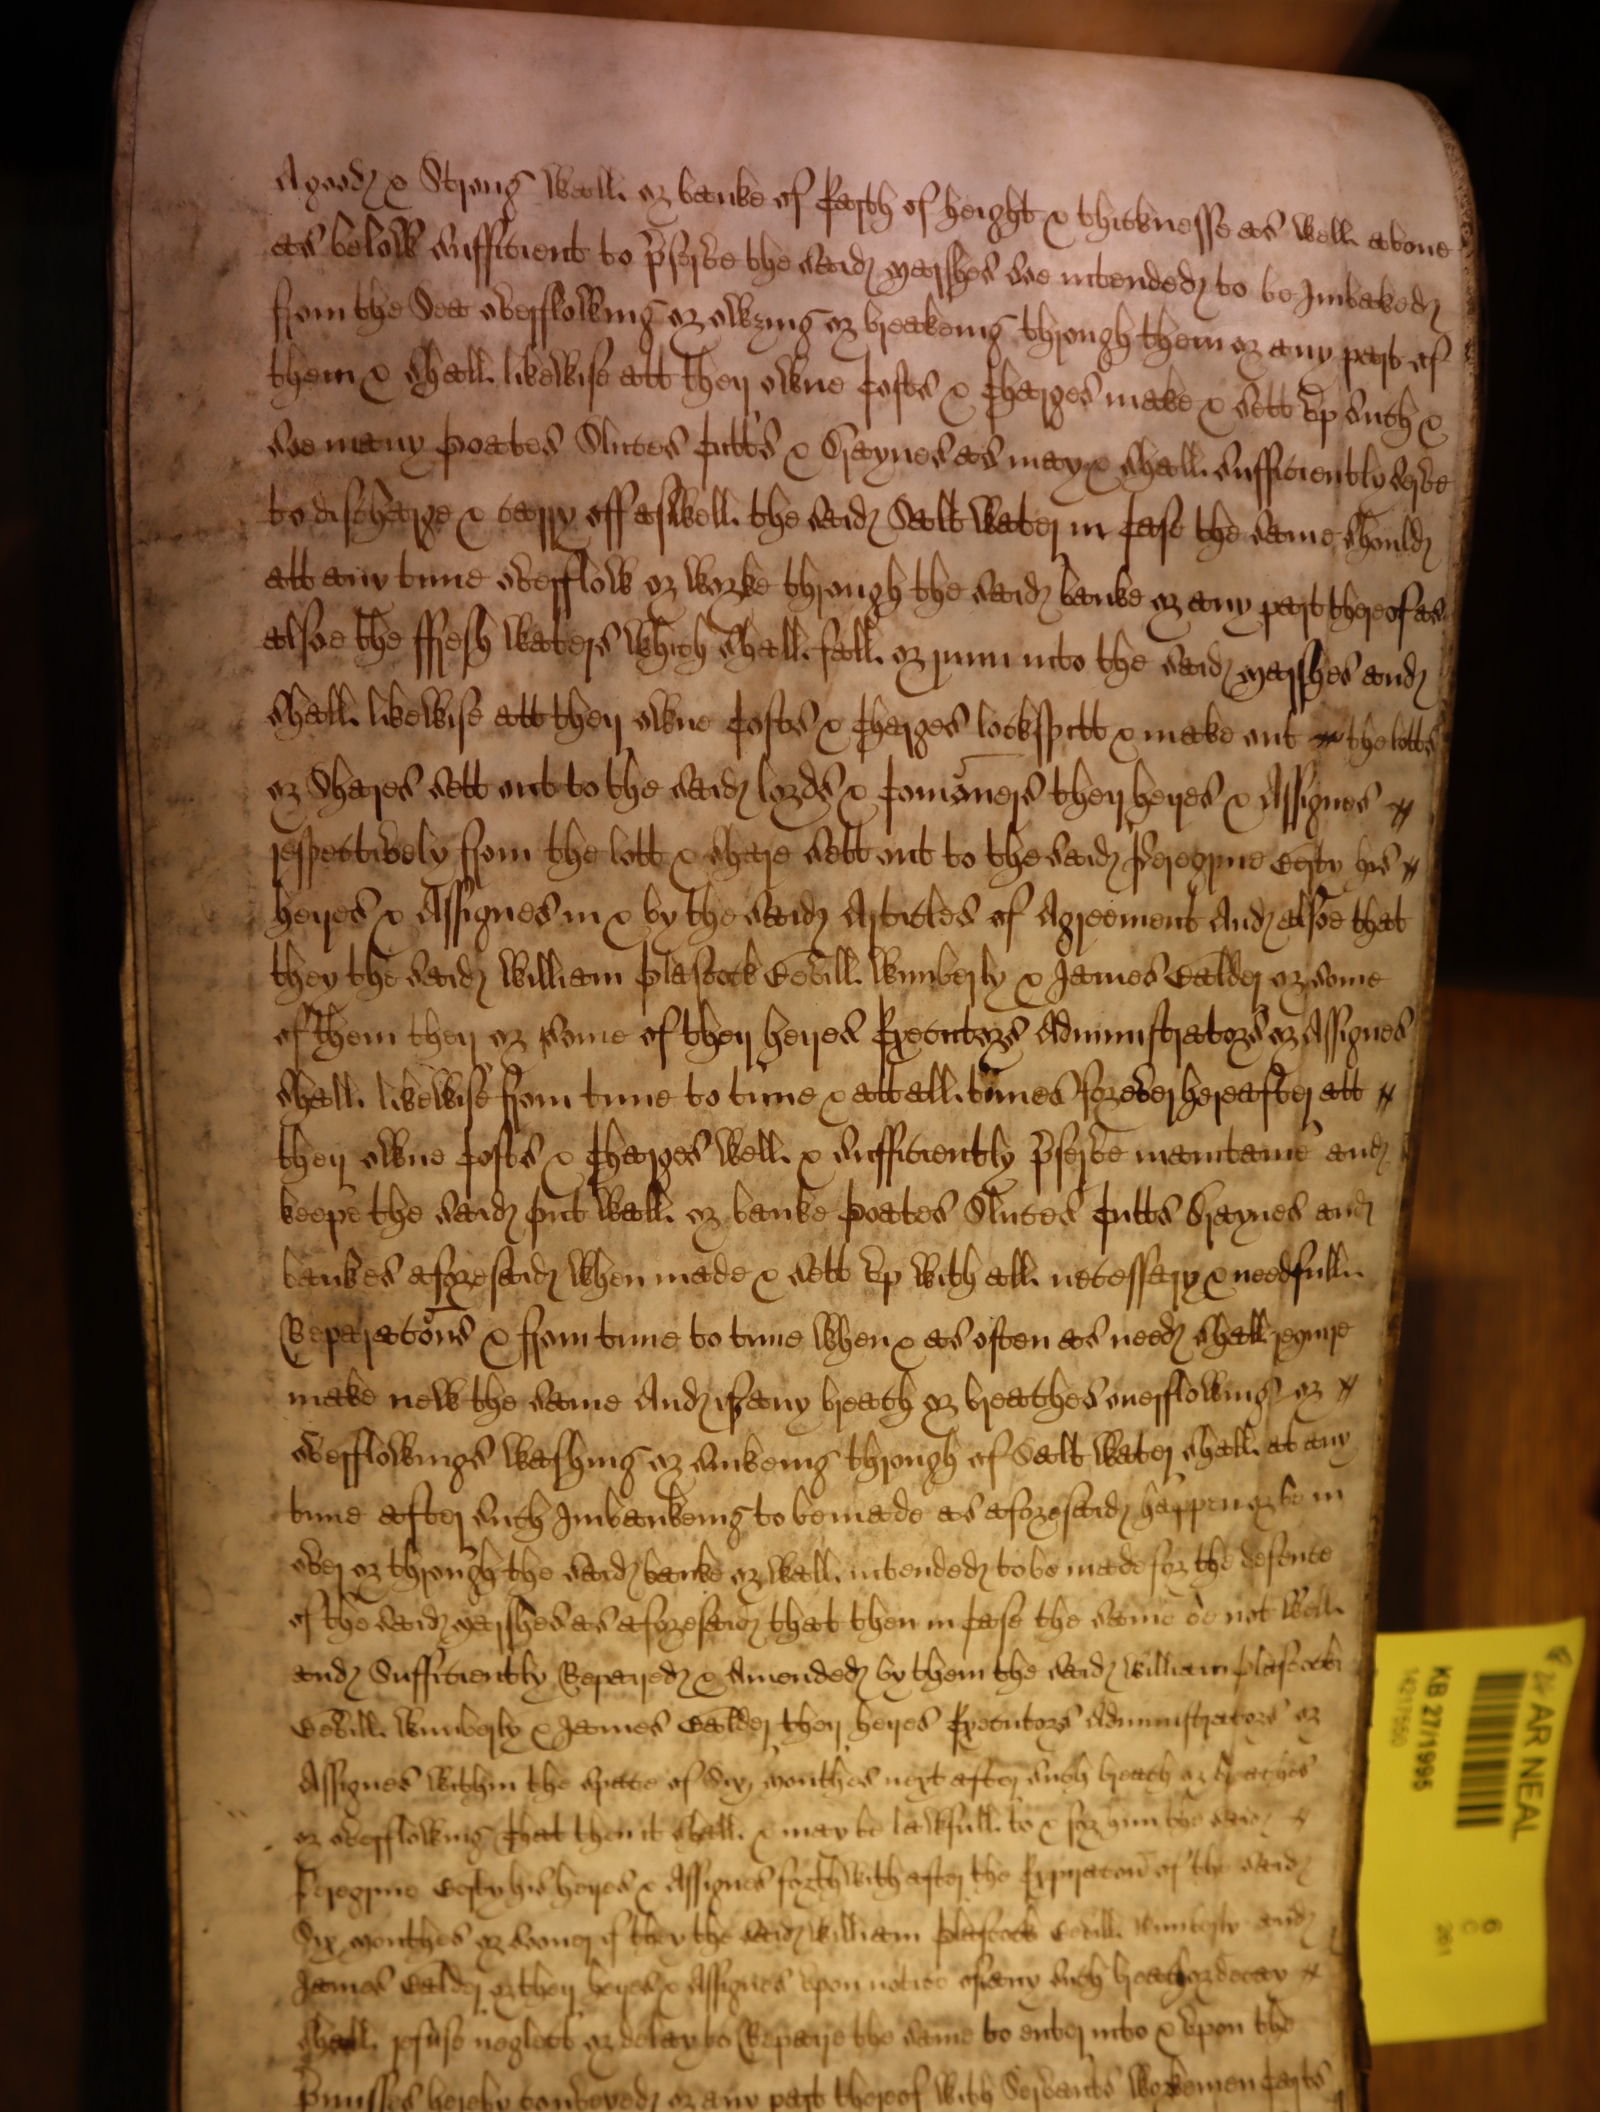 A good & Strong Wall or banke of Earth of height & thicknesse as well aboue
as below sufficient to p̃serve the said Marshes soe intended to be Imbaked
from the Sea overflowing or owzing or breakeing through them or any part of
them & shall likewise att their owne Costs & Charges make & sett vp such &
soe many Goates Sluces Cutts & Draynes as may & shall sufficiently serve
to discharge & carry off aswell the said Salt Water in Case the same should
att any time overflow or worke through the said banke or any part thereof as
alsoe the ffresh waters which shall fall or runn into the said Marshes and
shall likewise att their owne Costs & Charges lockspitt & make out the lotts
or Shares sett out to the said lords & Com̃oners their heires & Assignes
respectively from the lott & share sett out to the said Peregrine Berty his
heires & Assignes in & by the said Articles of Agreement And alsoe that
they the said William Bevill Wimberly & James or some
of them their or some of their heires Executors Administrators or Assignes
shall likewise from time to time & att all times forever hereafter att
their owne Costs & Charges well & sufficiently p̃serve maintaine and
keepe the said out Wall or banke Goates Sluces Cutts Draynes and
bankes aforesaid when made & sett vp with all necessary & needfull
Reparatõns & from time to time when & as often as need shall require
make new the same And if any breach or breaches overflowing or
overflowings washing or sinkeing through of Salt Water shall at any
time after such Imbankeing to be made as aforesaid happen or be in
over or through the said banke or Wall intended to be made for the defence
of the said Marshes as aforesaid that then in Case the same be not well
and Sufficiently Repaired & Amended by them the said William
Bevill Wimberly & James their heires Executors Administrators or
Assignes within the space of Six Monthes next after such breach or breaches
or overflowing That then it shall & may be lawfull to & for him the said
Peregrine Berty his heires & Assignes forthwith after the Expiracõn of the said
Six Monthes or sooner if they the said William Bevill Wimberly and
James or their heires & Assignes vpon notice of any such breach or decay
shall refuse neglect or delay to Repaire the same to enter into & vpon the
p̃misses hereby conveyed or any part thereof with Servants Workemen Carts
AR NEAL
KB 27/1995
6
C